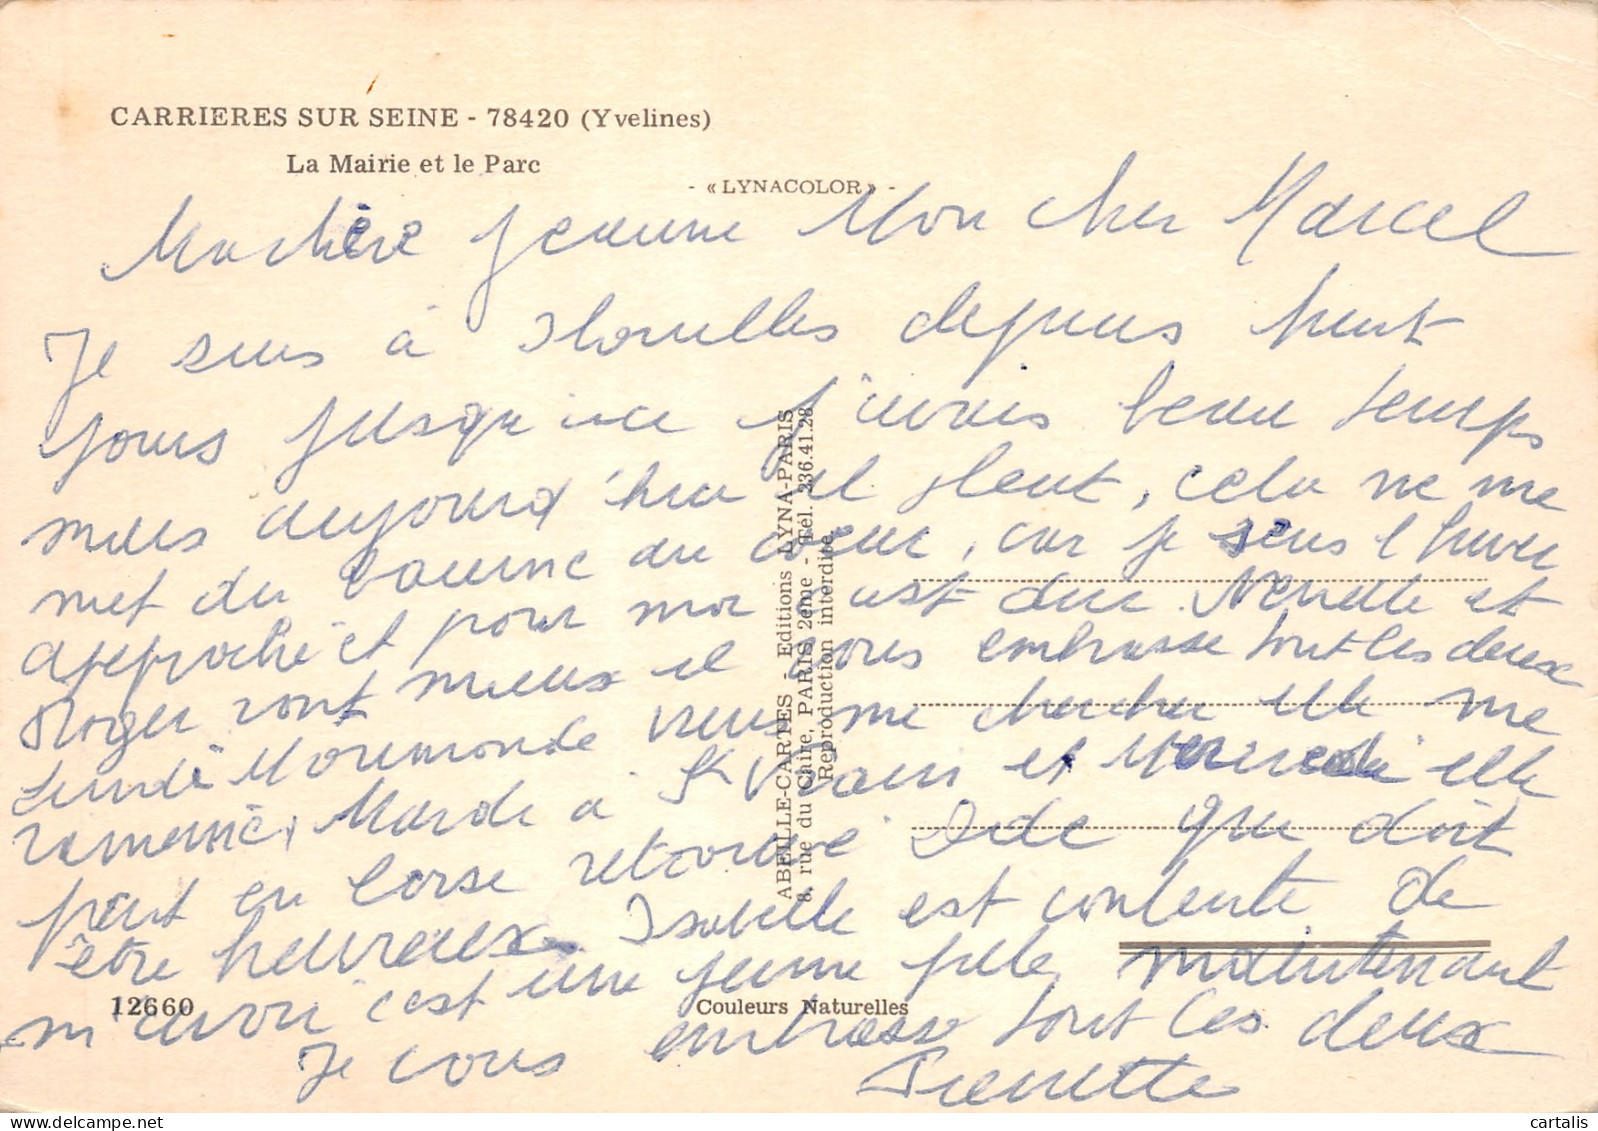 CARRIERES SUR SEINE - 78420 (Yvelines)
La Mairie et le Parc
- « LYNACOLOR » -
Ma chère Jeanne Mon cher Marcel
Je suis à Houilles depuis huit
jours jusqu'ice j'avais beau temps
mais aujourd'hui il pleut, cela ne me
met du baume au coeur, car je sens l'hiver
approché et pour moi c'est dur. Nenette et
Roger vont mieux il vous embrasse tout les deux
Lundi viens me chercher elle me
ramene, Mardi à St Vrain et Mercredi elle
part en Corse retrouvé Dede que doit
être heureux Isabelle est contente de
m'avoir c'est une jeune fille maintenant
Je vous embrasse tout les deux
Pierrette
ABEILLE-CARTES - Editions LYNA-PARIS
8, rue du Caire, PARIS 2ème - Tél. 236.41.28
Reproduction interdite
12660
Couleurs Naturelles
cartalis